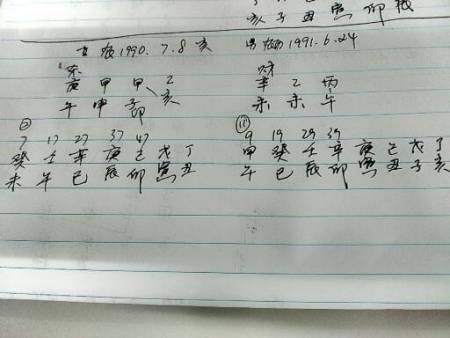 亥 子 丑 寅 卯 辰
女 1990.7.8 亥
男 1991.6.24
庚 甲 甲 乙
辛 乙 丙
午 申 子 亥
卯
未 未 午
7 17 27 37 47
9 19 29 39
癸 壬 辛 庚 己 戊 丁
甲 癸 壬 辛 庚 己 戊 丁
未 午 巳 辰 卯 寅 丑
午 巳 辰 卯 寅 丑 子 亥